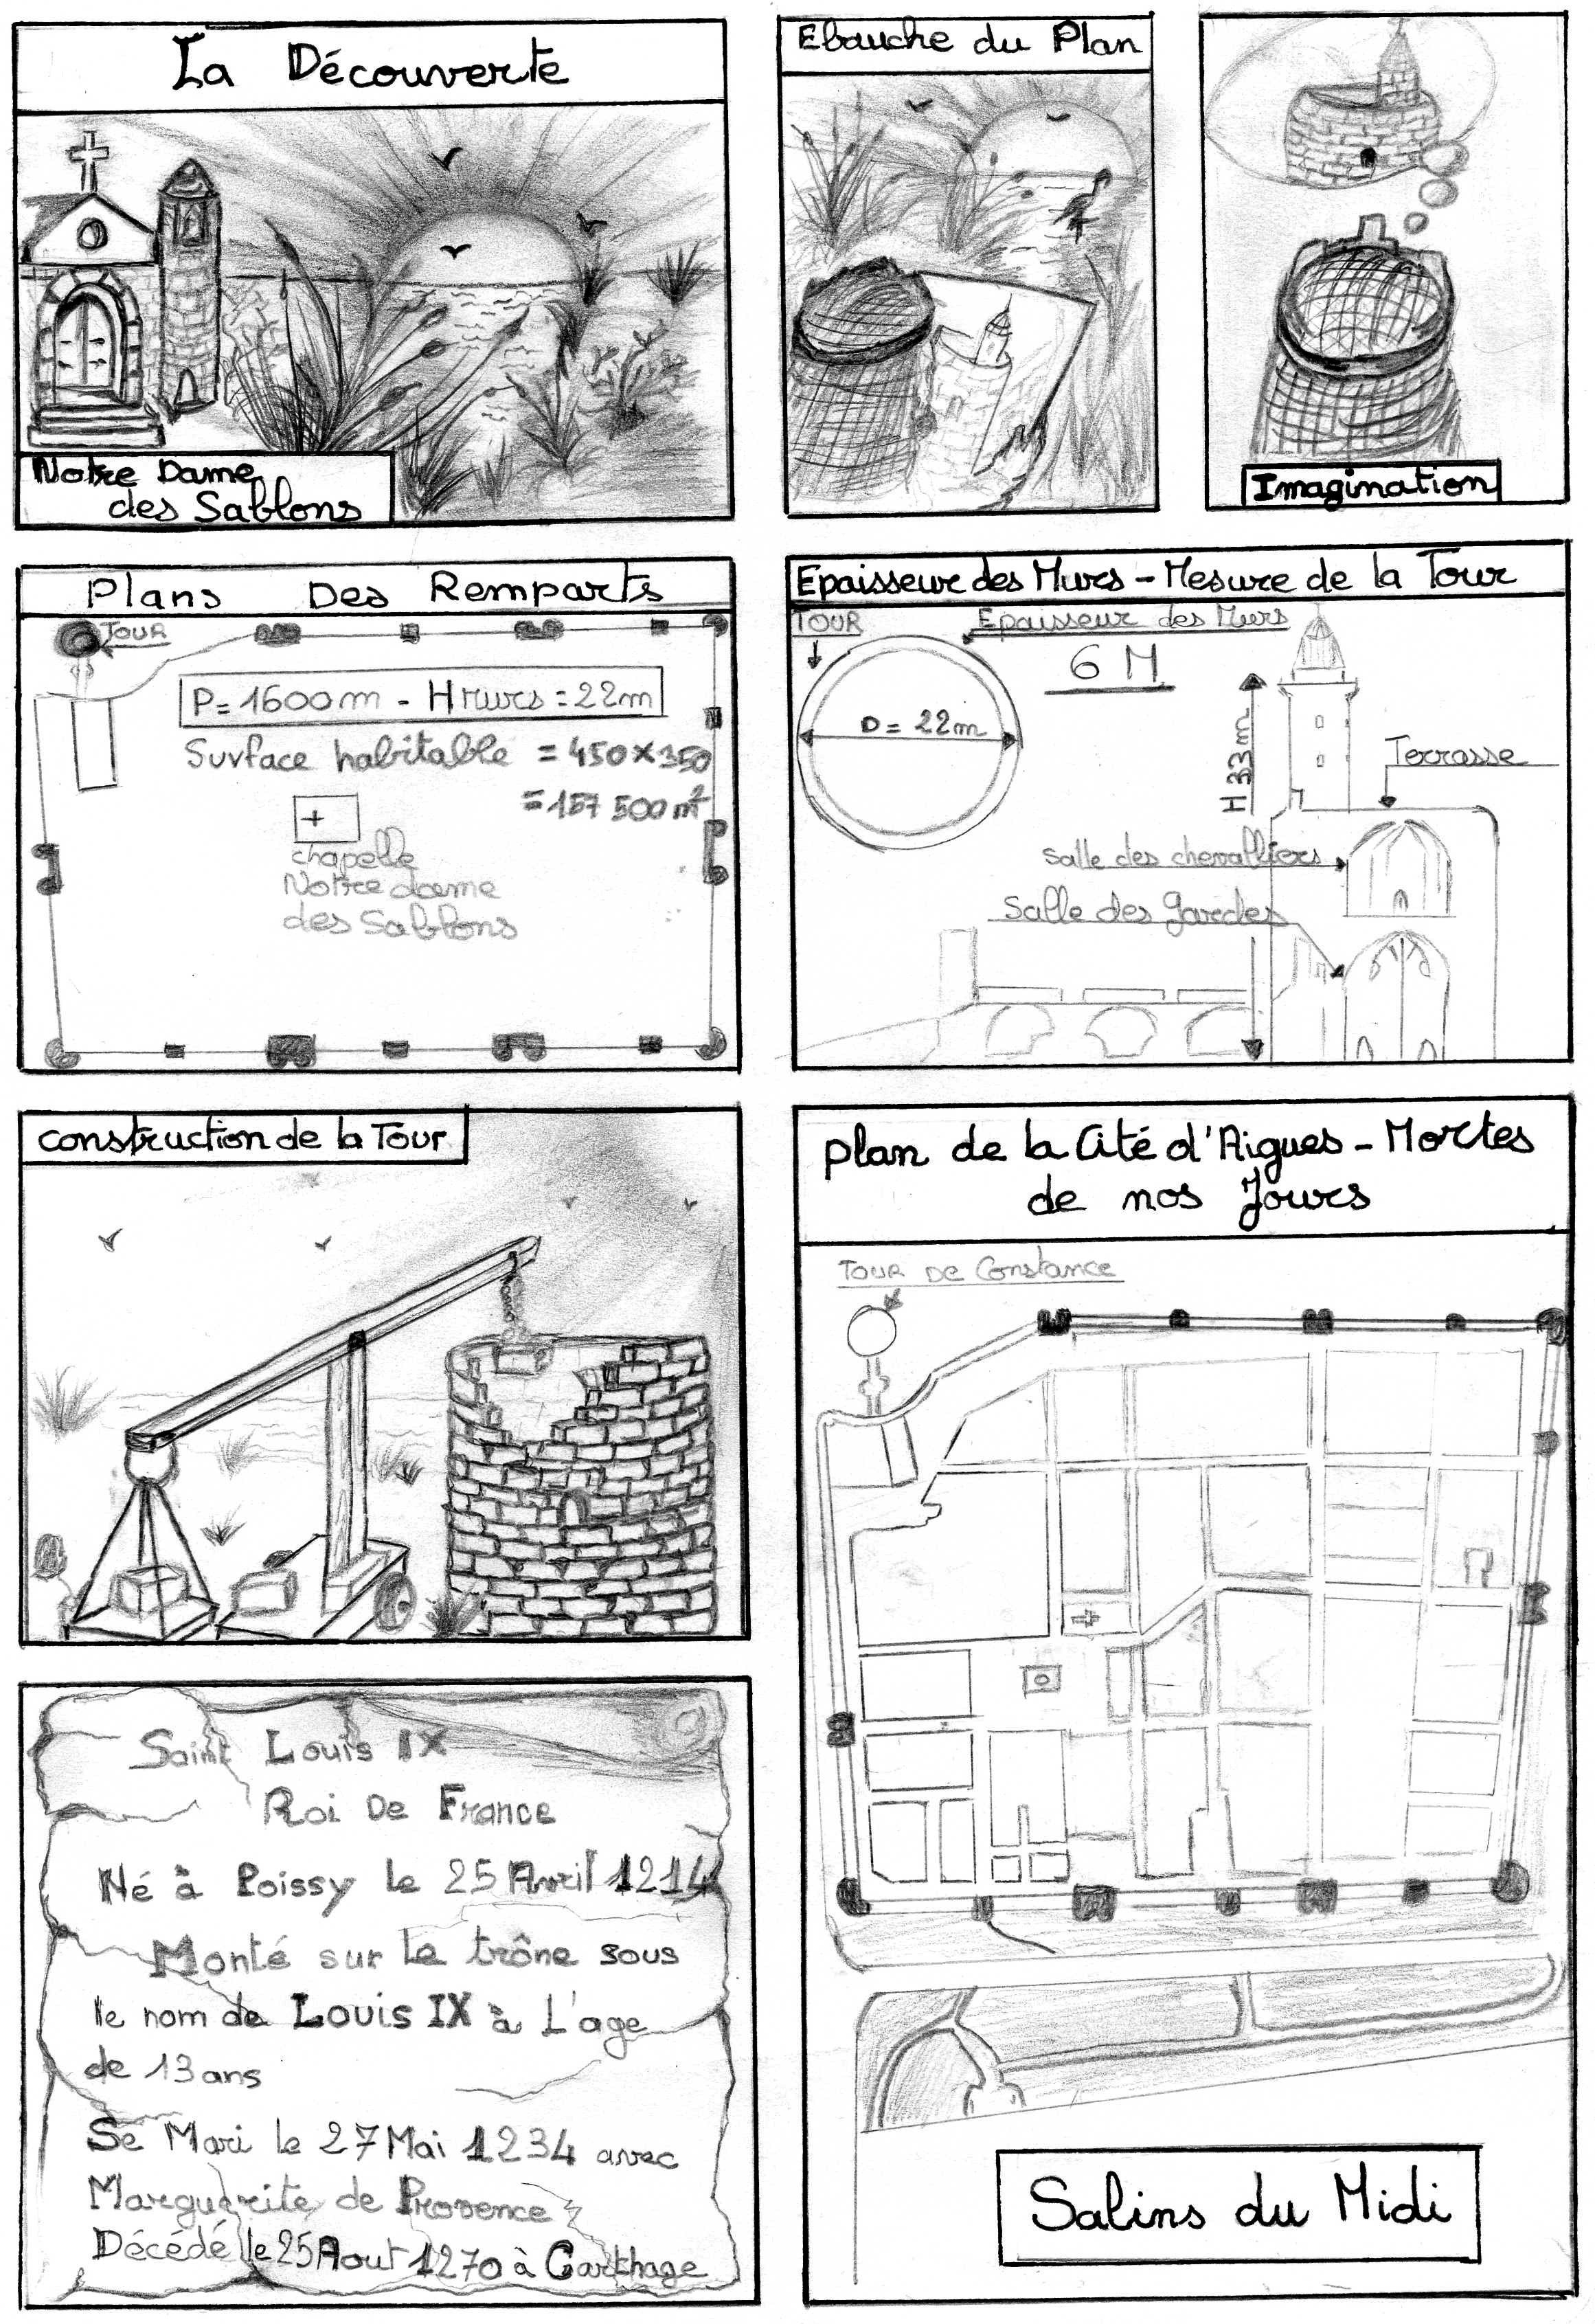 La Découverte
Notre Dame
des Sablons
Ebauche du Plan
Imagination
Plans Des Remparts
TOUR
P=1600m - H Murs = 22m
Surface habitable = 450x350
= 157 500 m²
+
chapelle
Notre dame
des Sablons
Epaisseur des Murs - Mesure de la Tour
TOUR
Epaisseur des Murs
6 M
D = 22m
H 33m
Terrasse
Salle des chevalliers
Salle des gardes
construction de la Tour
plan de la Cité d'Aigues-Mortes
de nos Jours
TOUR De Constance
Salins du Midi
Saint Louis IX
Roi De France
Né à Poissy le 25 Avril 1214
Monté sur le trône sous
le nom de Louis IX à L'age
de 13 ans
Se Mari le 27 Mai 1234 avec
Marguerite de Provence
Décédé le 25 Aout 1270 à Carthage